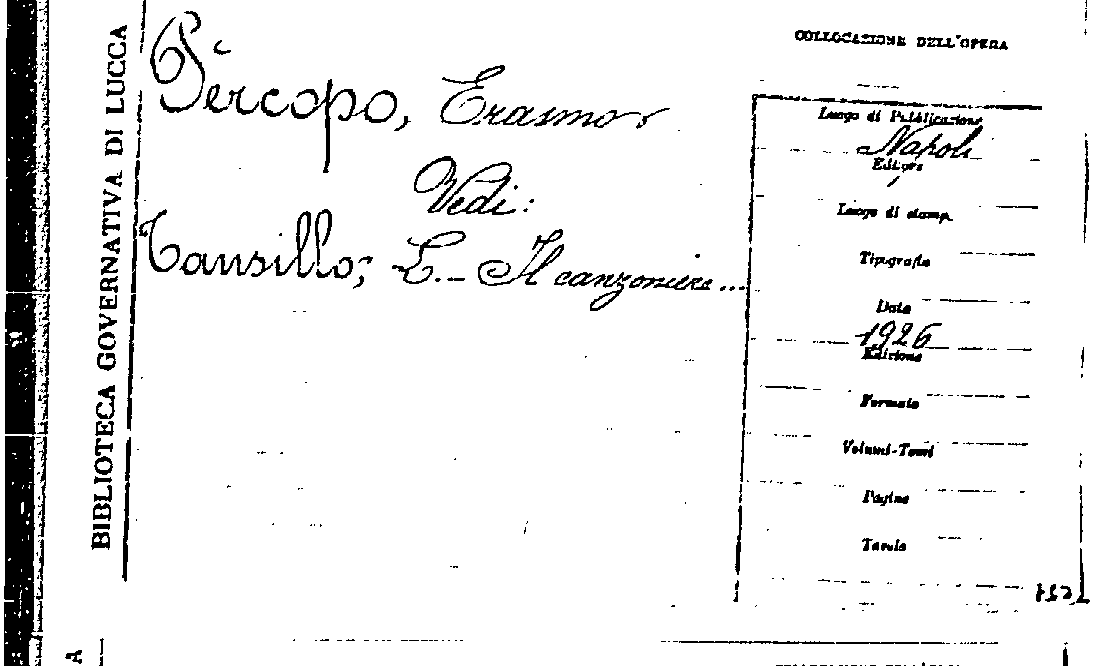 BIBLIOTECA GOVERNATIVA DI LUCCA
Pèrcopo, Erasmo
Vedi:
Tansillo, L. - Il canzoniere...
COLLOCAZIONE DELL'OPERA
Luogo di Pubblicazione
Napoli
Editore
Luogo di stamp.
Tipografia
Data
1926
Edizione
Formato
Volumi-Tomi
Pagine
Tavole